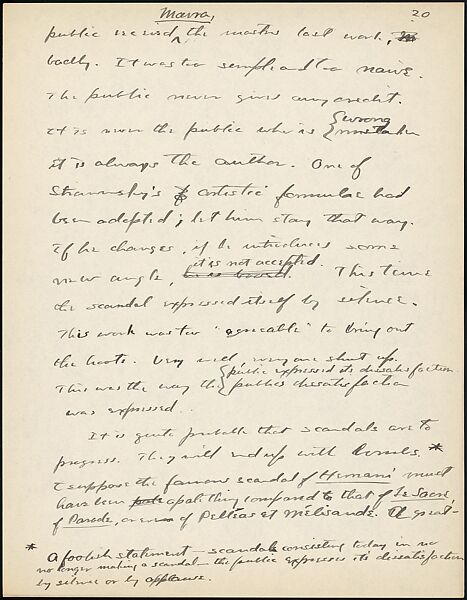 Mavra,
20
public received the masters last work,
badly. It was too simple and too naive.
The public never gives any credit.
It is never the public who is {wrong
{mistaken
it is always the author. One of
Strawinsky's artistic formulae had
been adopted; let him stay that way.
If he changes, if he introduces some
it is not accepted.
new angle, he is booed. This time
the scandal expressed itself by silence.
This work was too "agreeable" to bring out
the hoots. Very well, every one shut up.
{public expressed its dissatisfaction
This was the way the {publics dissatisfaction
was expressed.
It is quite probable that scandals are to
progress. They will end up with bombs. *
I suppose the famous scandal of Hernani must
have been a pale thing compared to that of Le Sacre,
of Parade, or even of Pelléas et Mélisande. The great-
* A foolish statement - scandals consisting today in no
no longer making a scandal - the public expresses its dissatisfaction
by silence or by applause.